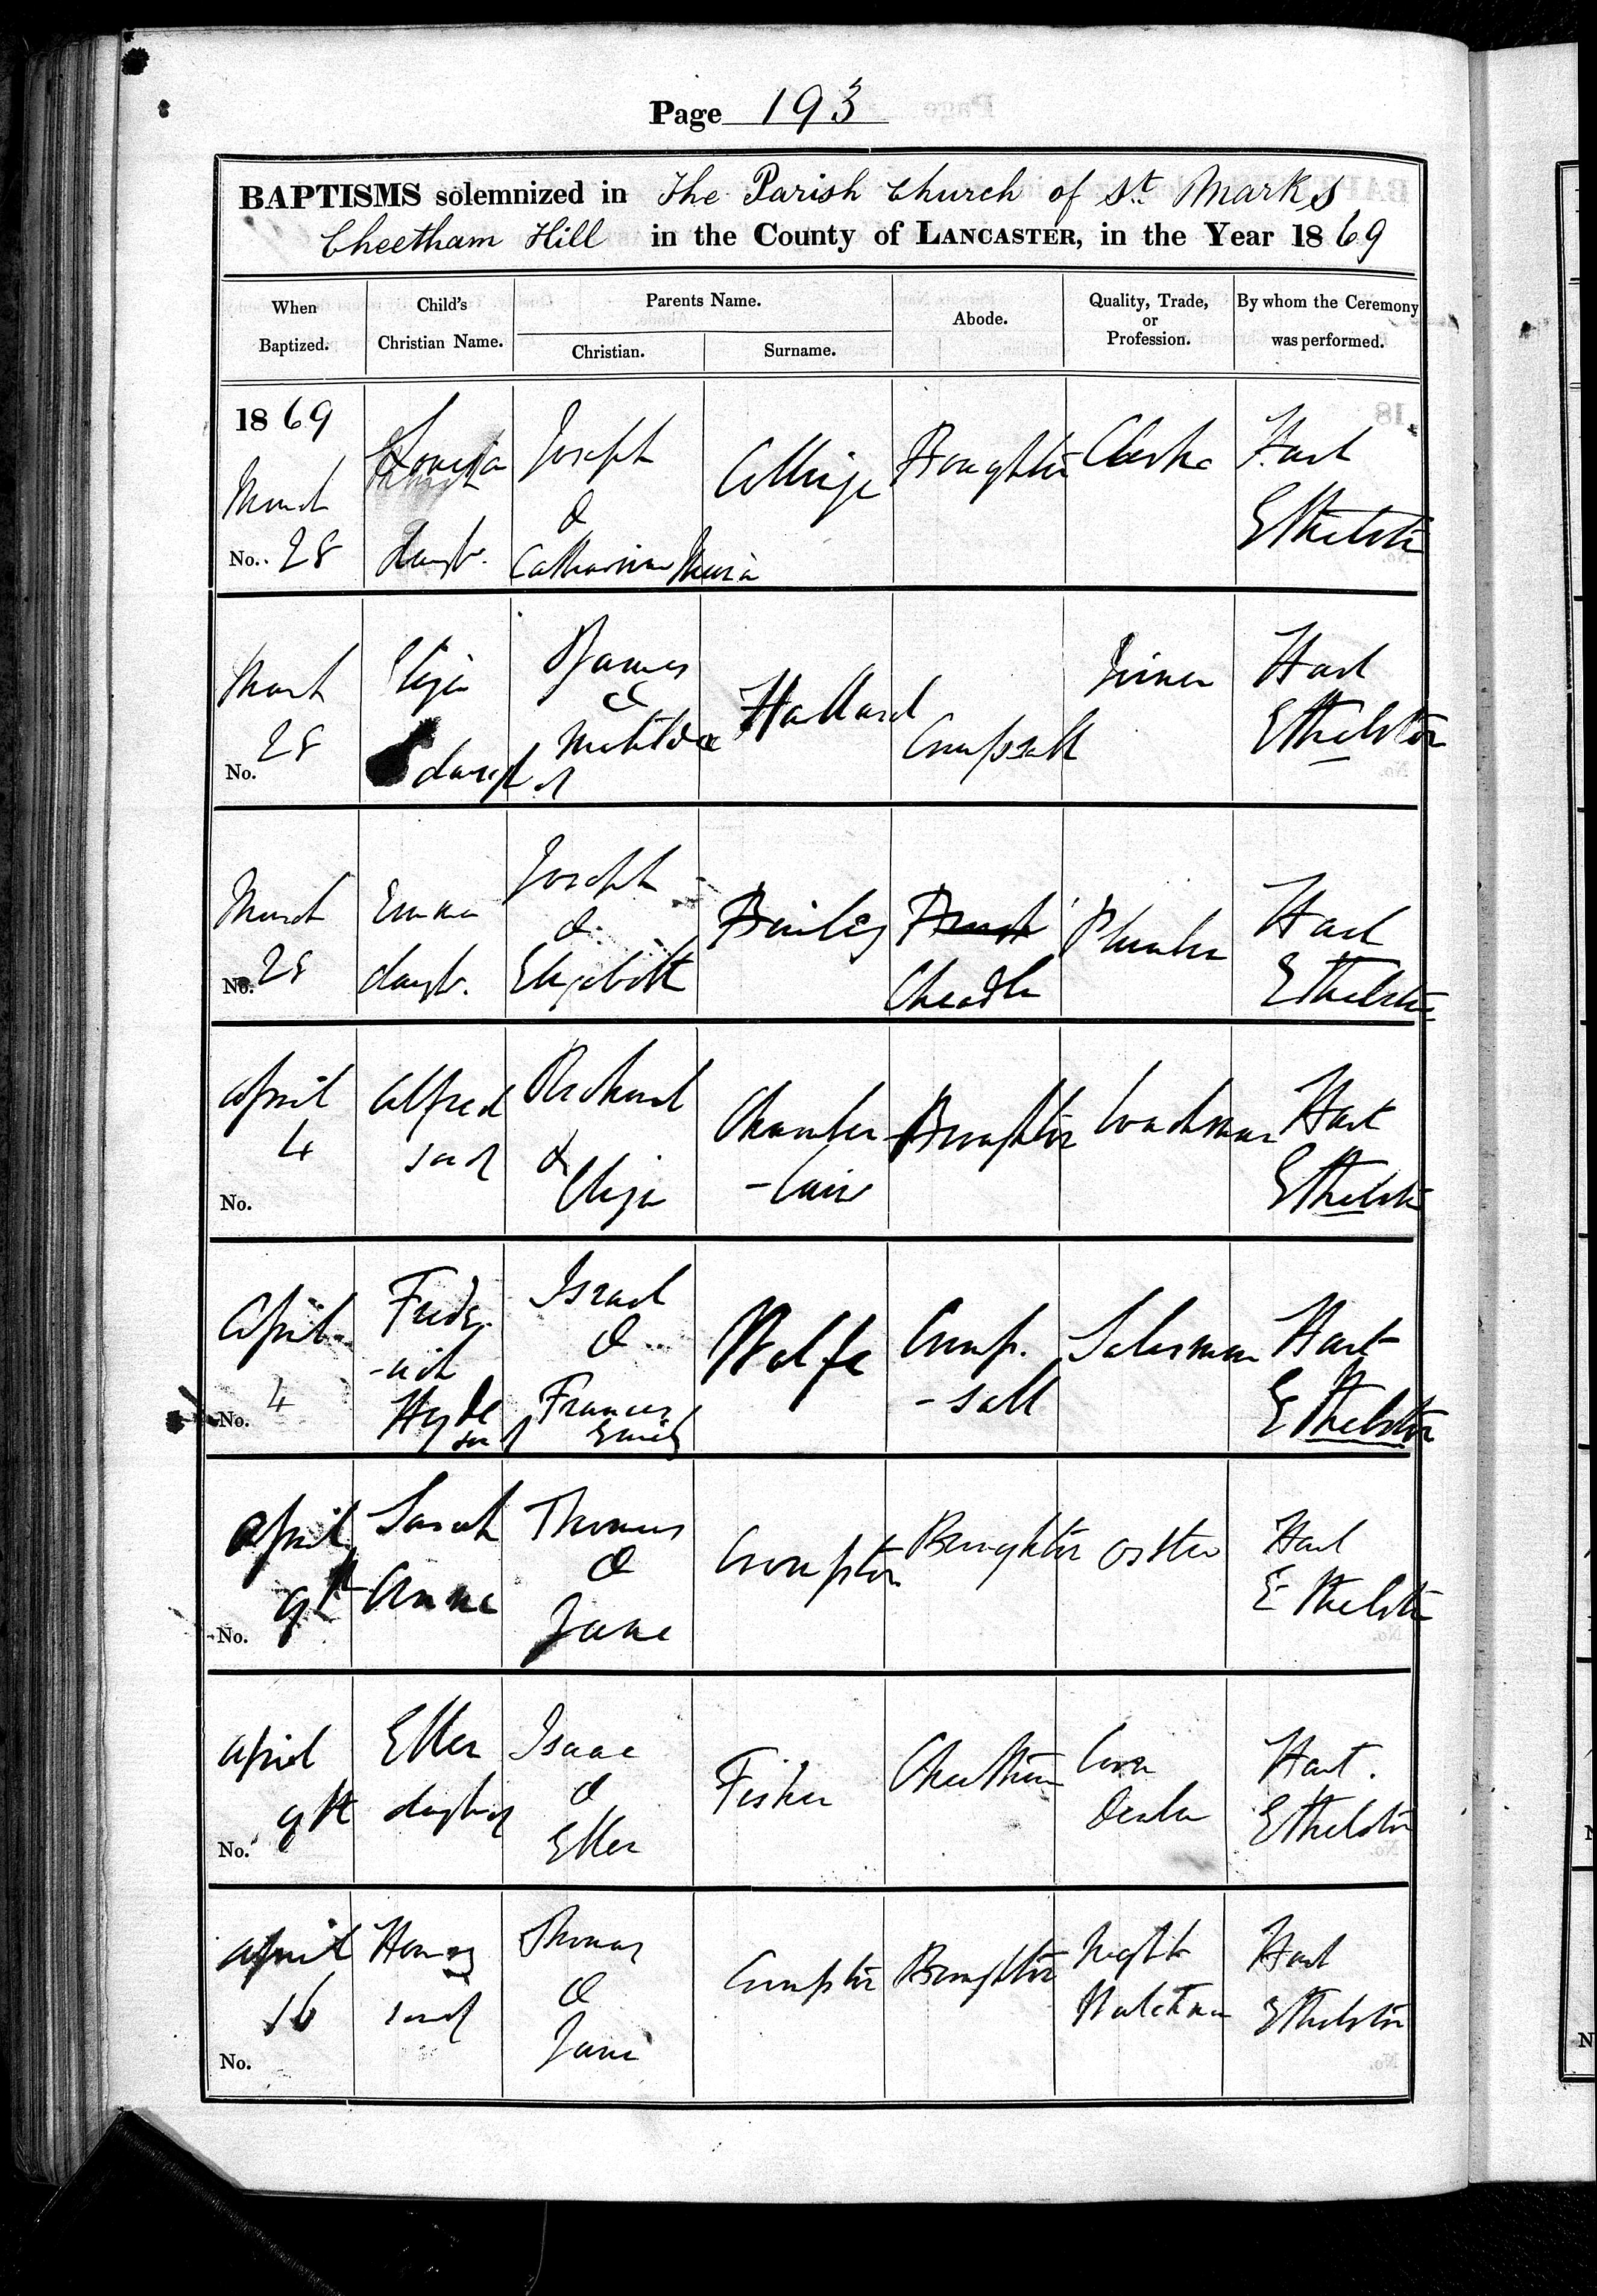 Page 193
BAPTISMS solemnized in The Parish Church of St. Marks
Cheetham Hill in the County of LANCASTER, in the Year 1869
When Baptized.
Child's Christian Name.
Parents Name.
Christian.
Surname.
Abode.
Quality, Trade, or Profession.
By whom the Ceremony was performed.
1869
March
No. 28
Louisa
daughr.
Joseph
&
Catharine Maria
Collinge
Broughton
Clerk
Hart
Ethelston
March
28
No.
Eliza
daugh of
James
&
Matilda
Hallard
Crumpsall
Joiner
Hart
Ethelston
March
No. 28
Emma
daughr.
Joseph
&
Elizabeth
Bailey
Cheadle
Plumber
Hart
Ethelston
April
4
No.
Alfred
son of
Richard
&
Eliza
Chamber
-lain
Broughton
Coachman
Hart
Ethelston
April
4
No.
Frede
-rich
Hyde
son of
Israel
&
Frances
Emily
Wolfe
Crump.
-sall
Salesman
Hart
Ethelston
April
9th
No.
Sarah
Anne
Thomas
&
Jane
Crompton
Broughton
Ostler
Hart
Ethelston
April
9th
No.
Ellen
daughr of
Isaac
&
Ellen
Fisher
Cheetham
Corn
Dealer
Hart.
Ethelston
April
16
No.
Henry
son of
Thomas
&
Jane
Crompton
Broughton
Night
Watchman
Hart
Ethelston